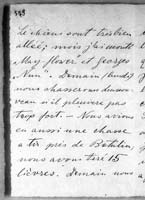 Le chiens sont très bien
allé; mais j'ai monté
"May flower" et Georges
"Nun". Demain (lundi)
nous chasserons de nou-
veau si il pleuvera pas
trop fort. — Nous avions
eu aussi une chasse
a tir près de
nous avons tiré 15
lièvres. Demain nous